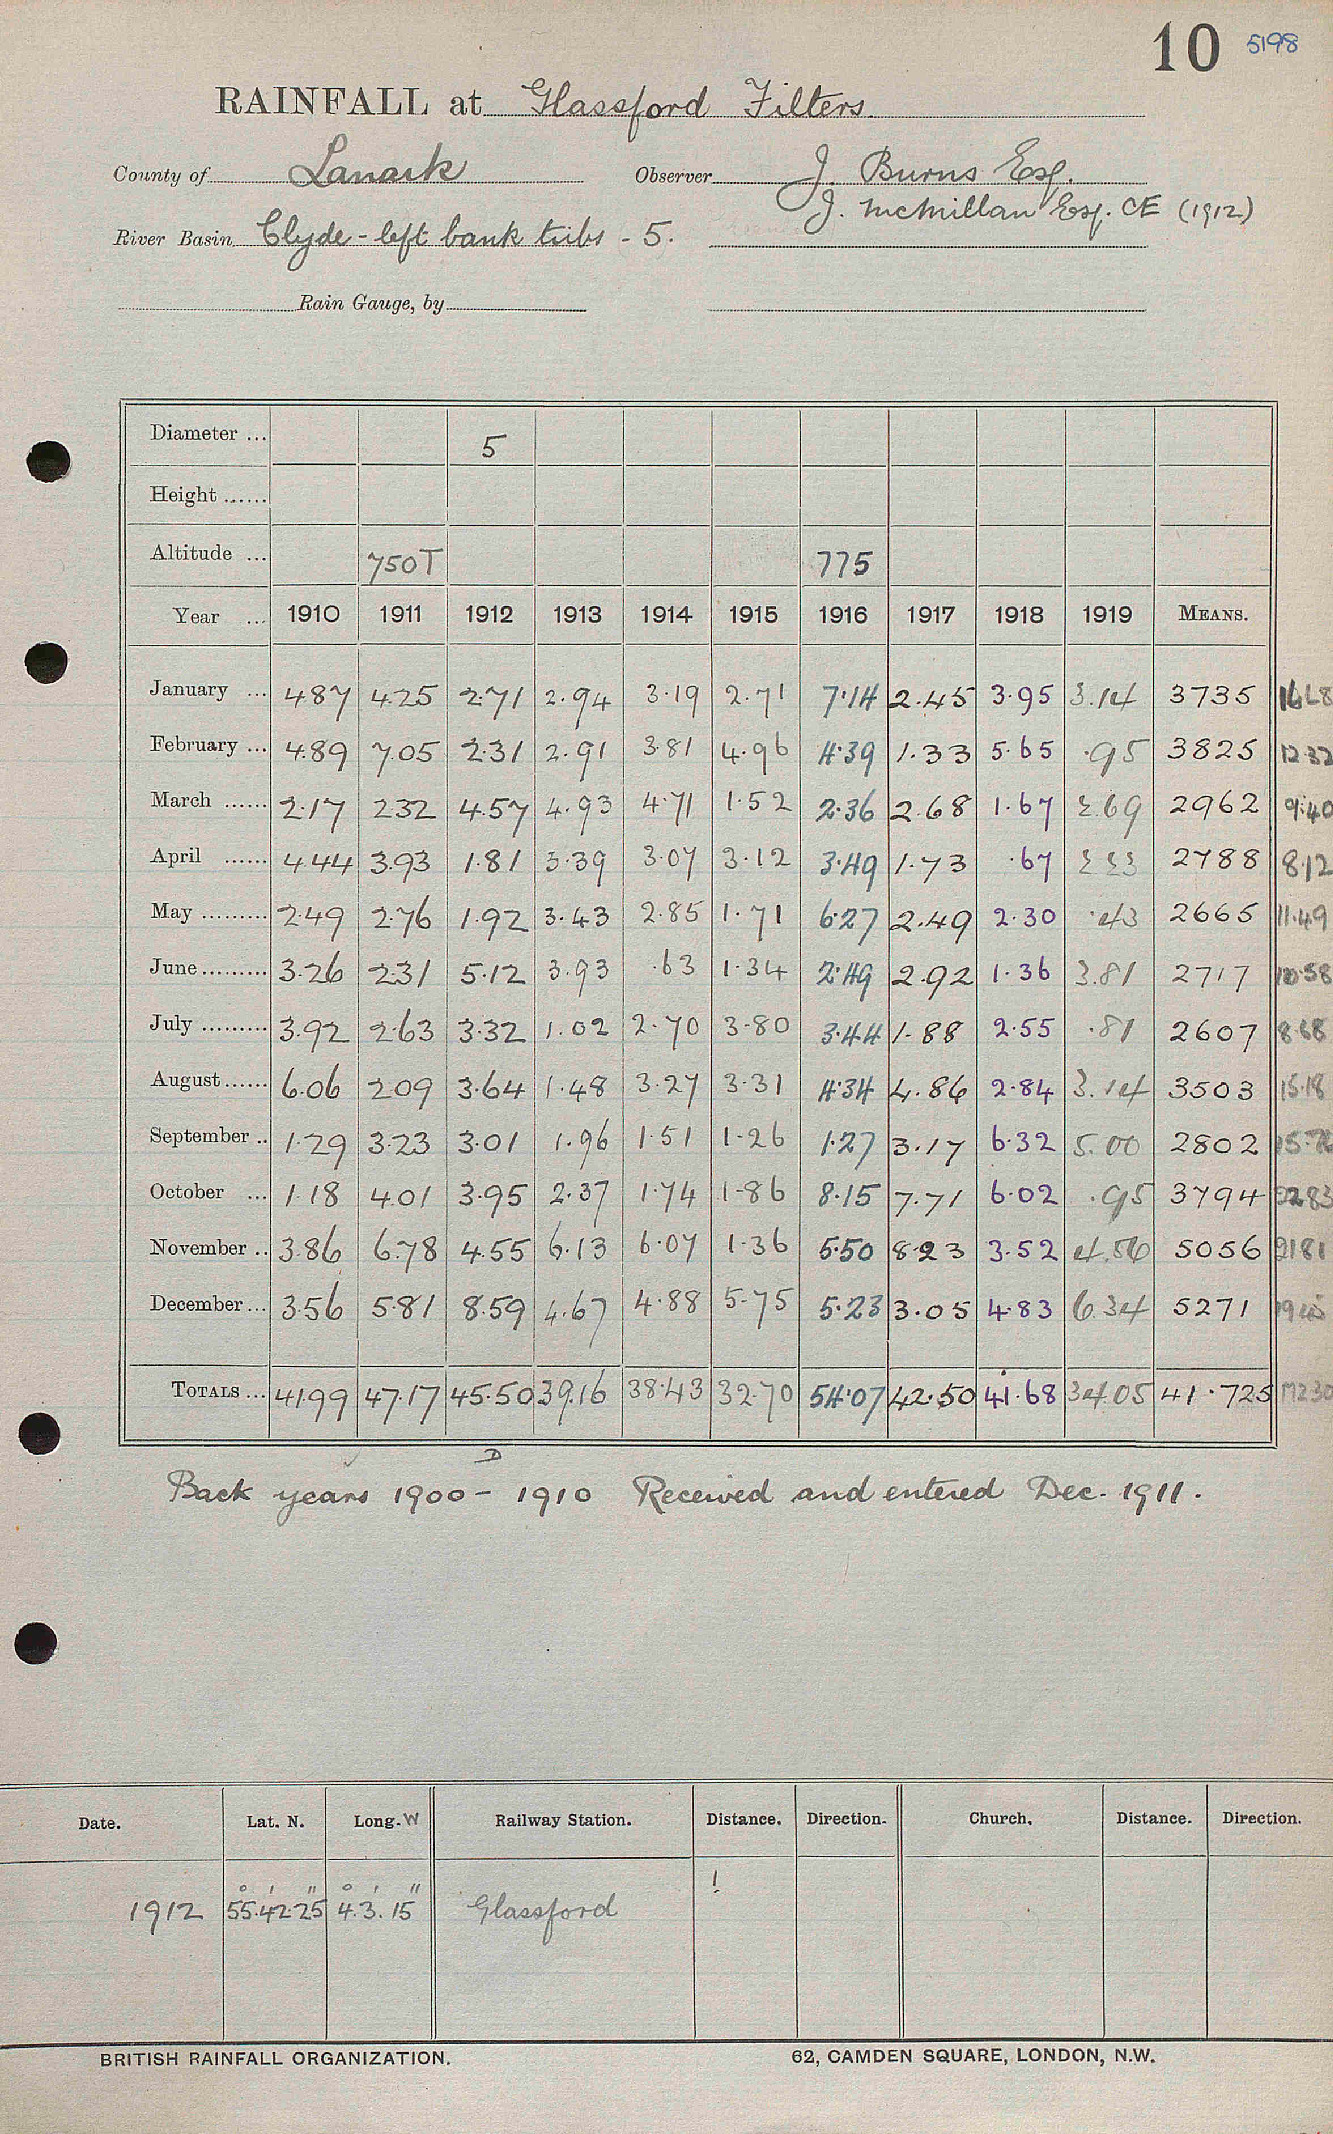 10 5198
RAINFALL at Glassford Filters.
County of Lanark Observer J. Burns Esq.
J. McMillan Esq. CE (1912)
River Basin Clyde - left bank tribs - 5.
Rain Gauge, by
Diameter ... 5
Height ......
Altitude ... 750T 775
Year ... 1910 1911 1912 1913 1914 1915 1916 1917 1918 1919 MEANS.
January ... 4.87 4.25 2.71 2.94 3.19 2.71 7.14 2.45 3.95 3.14 3735 16.68
February ... 4.89 7.05 2.31 2.91 3.81 4.96 4.39 1.33 5.65 .95 3825 12.32
March ...... 2.17 2.32 4.57 4.93 4.71 1.52 2.36 2.68 1.67 2.69 2962 9.40
April ...... 4.44 3.93 1.81 3.39 3.07 3.12 3.49 1.73 .67 2.23 2788 8.12
May ......... 2.49 2.76 1.92 3.43 2.85 1.71 6.27 2.49 2.30 .43 2665 11.49
June ......... 3.26 2.31 5.12 3.93 .63 1.34 2.49 2.92 1.36 3.81 2717 10.58
July ......... 3.92 2.63 3.32 1.02 2.70 3.80 3.44 1.88 2.55 .81 2607 8.68
August ...... 6.06 2.09 3.64 1.48 3.27 3.31 4.34 4.86 2.84 3.14 3503 15.18
September .. 1.29 3.23 3.01 1.96 1.51 1.26 1.27 3.17 6.32 5.00 2802 15.76
October ... 1.18 4.01 3.95 2.37 1.74 1.86 8.15 7.71 6.02 .95 3794 22.83
November .. 3.86 6.78 4.55 6.13 6.07 1.36 5.50 8.23 3.52 4.56 5056 21.81
December ... 3.56 5.81 8.59 4.67 4.88 5.75 5.23 3.05 4.83 6.34 5271 19.45
TOTALS ... 41.99 47.17 45.50 39.16 38.43 32.70 54.07 42.50 41.68 34.05 41.725 172.30
D
Back years 1900 - 1910 Received and entered Dec. 1911.
Date. Lat. N. Long. W Railway Station. Distance. Direction. Church. Distance. Direction.
1912 55° 42' 25" 4° 3' 15" Glassford !
BRITISH RAINFALL ORGANIZATION. 62, CAMDEN SQUARE, LONDON, N.W.